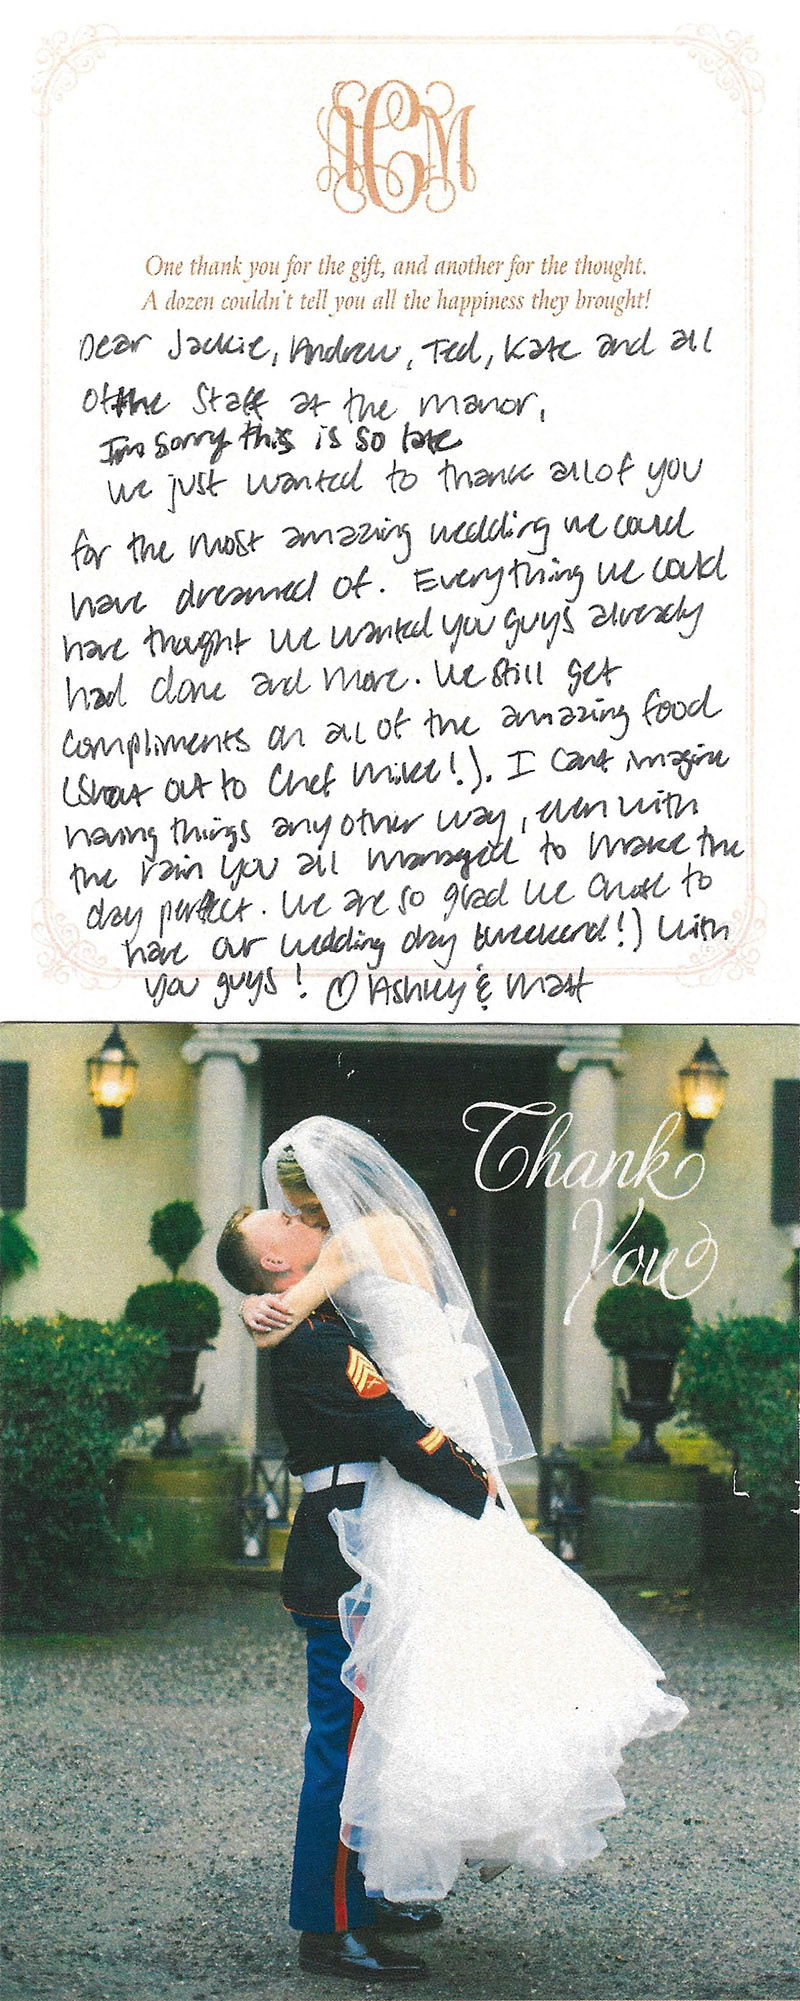 ACM
One thank you for the gift, and another for the thought.
A dozen couldn't tell you all the happiness they brought!
Dear Jackie, Andrew, Ted, Kate and all
of the Staff at the Manor,
I'm sorry this is so late
We just wanted to thank all of you
for the most amazing wedding we could
have dreamed of. Everything we could
have thought we wanted you guys already
had done and more. We still get
compliments on all of the amazing food
(Shout out to Chef Mike!). I cant imagine
having things any other way, even with
the rain you all managed to make the
day perfect. We are so glad we chose to
have our wedding day (weekend!) with
you guys! ♡ Ashley & Matt
Thank
You